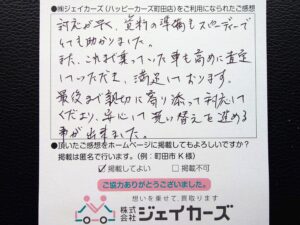 ●㈱ジェイカーズ(ハッピーカーズ町田店)をご利用になられたご感想
対応が早く、資料の準備もスピーディーで
とても助かりました。
また、これまで乗っていた車も高めに査定
していただき、満足しております。
最後まで親切に寄り添って対応して
くださり、安心して買い替えを進める
事が出来ました。
●頂いたご感想をホームページに掲載してもよろしいですか?
掲載は匿名で行います。(例:町田市K様)
☑掲載してよい □掲載不可
ご協力ありがとうございました。
想いを乗せて、買取ります
株式会社 ジェイカーズ